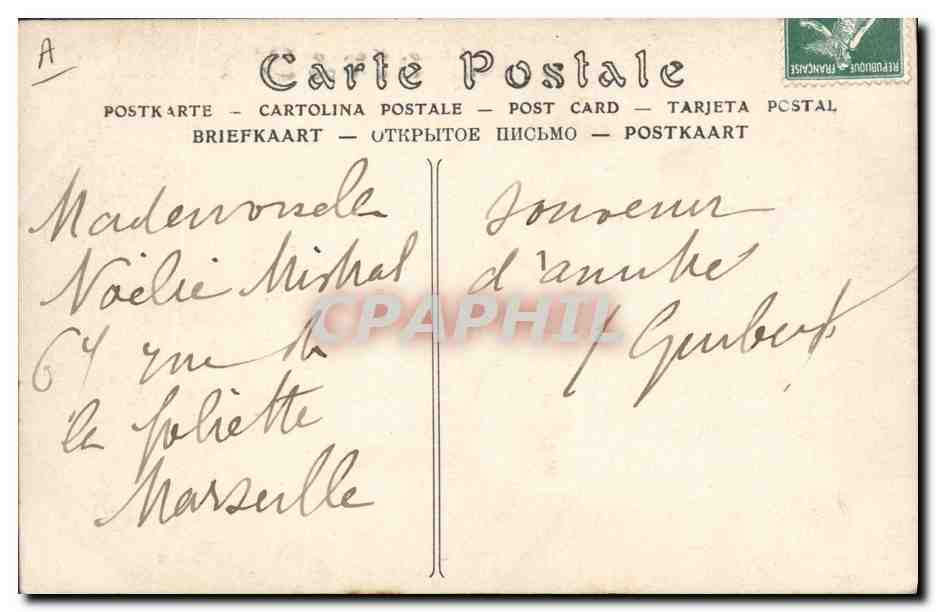 A
REPUBLIQUE FRANÇAISE
Carte Postale
POSTKARTE – CARTOLINA POSTALE – POST CARD – TARJETA POSTAL
BRIEFKAART – ОТКРЫТОЕ ПИСЬМО – POSTKAART
Mademoiselle
Noëlie Mistral
67 rue de
la Joliette
Marseille
souvenir
d'amitié
Guibert
CPAPHIL